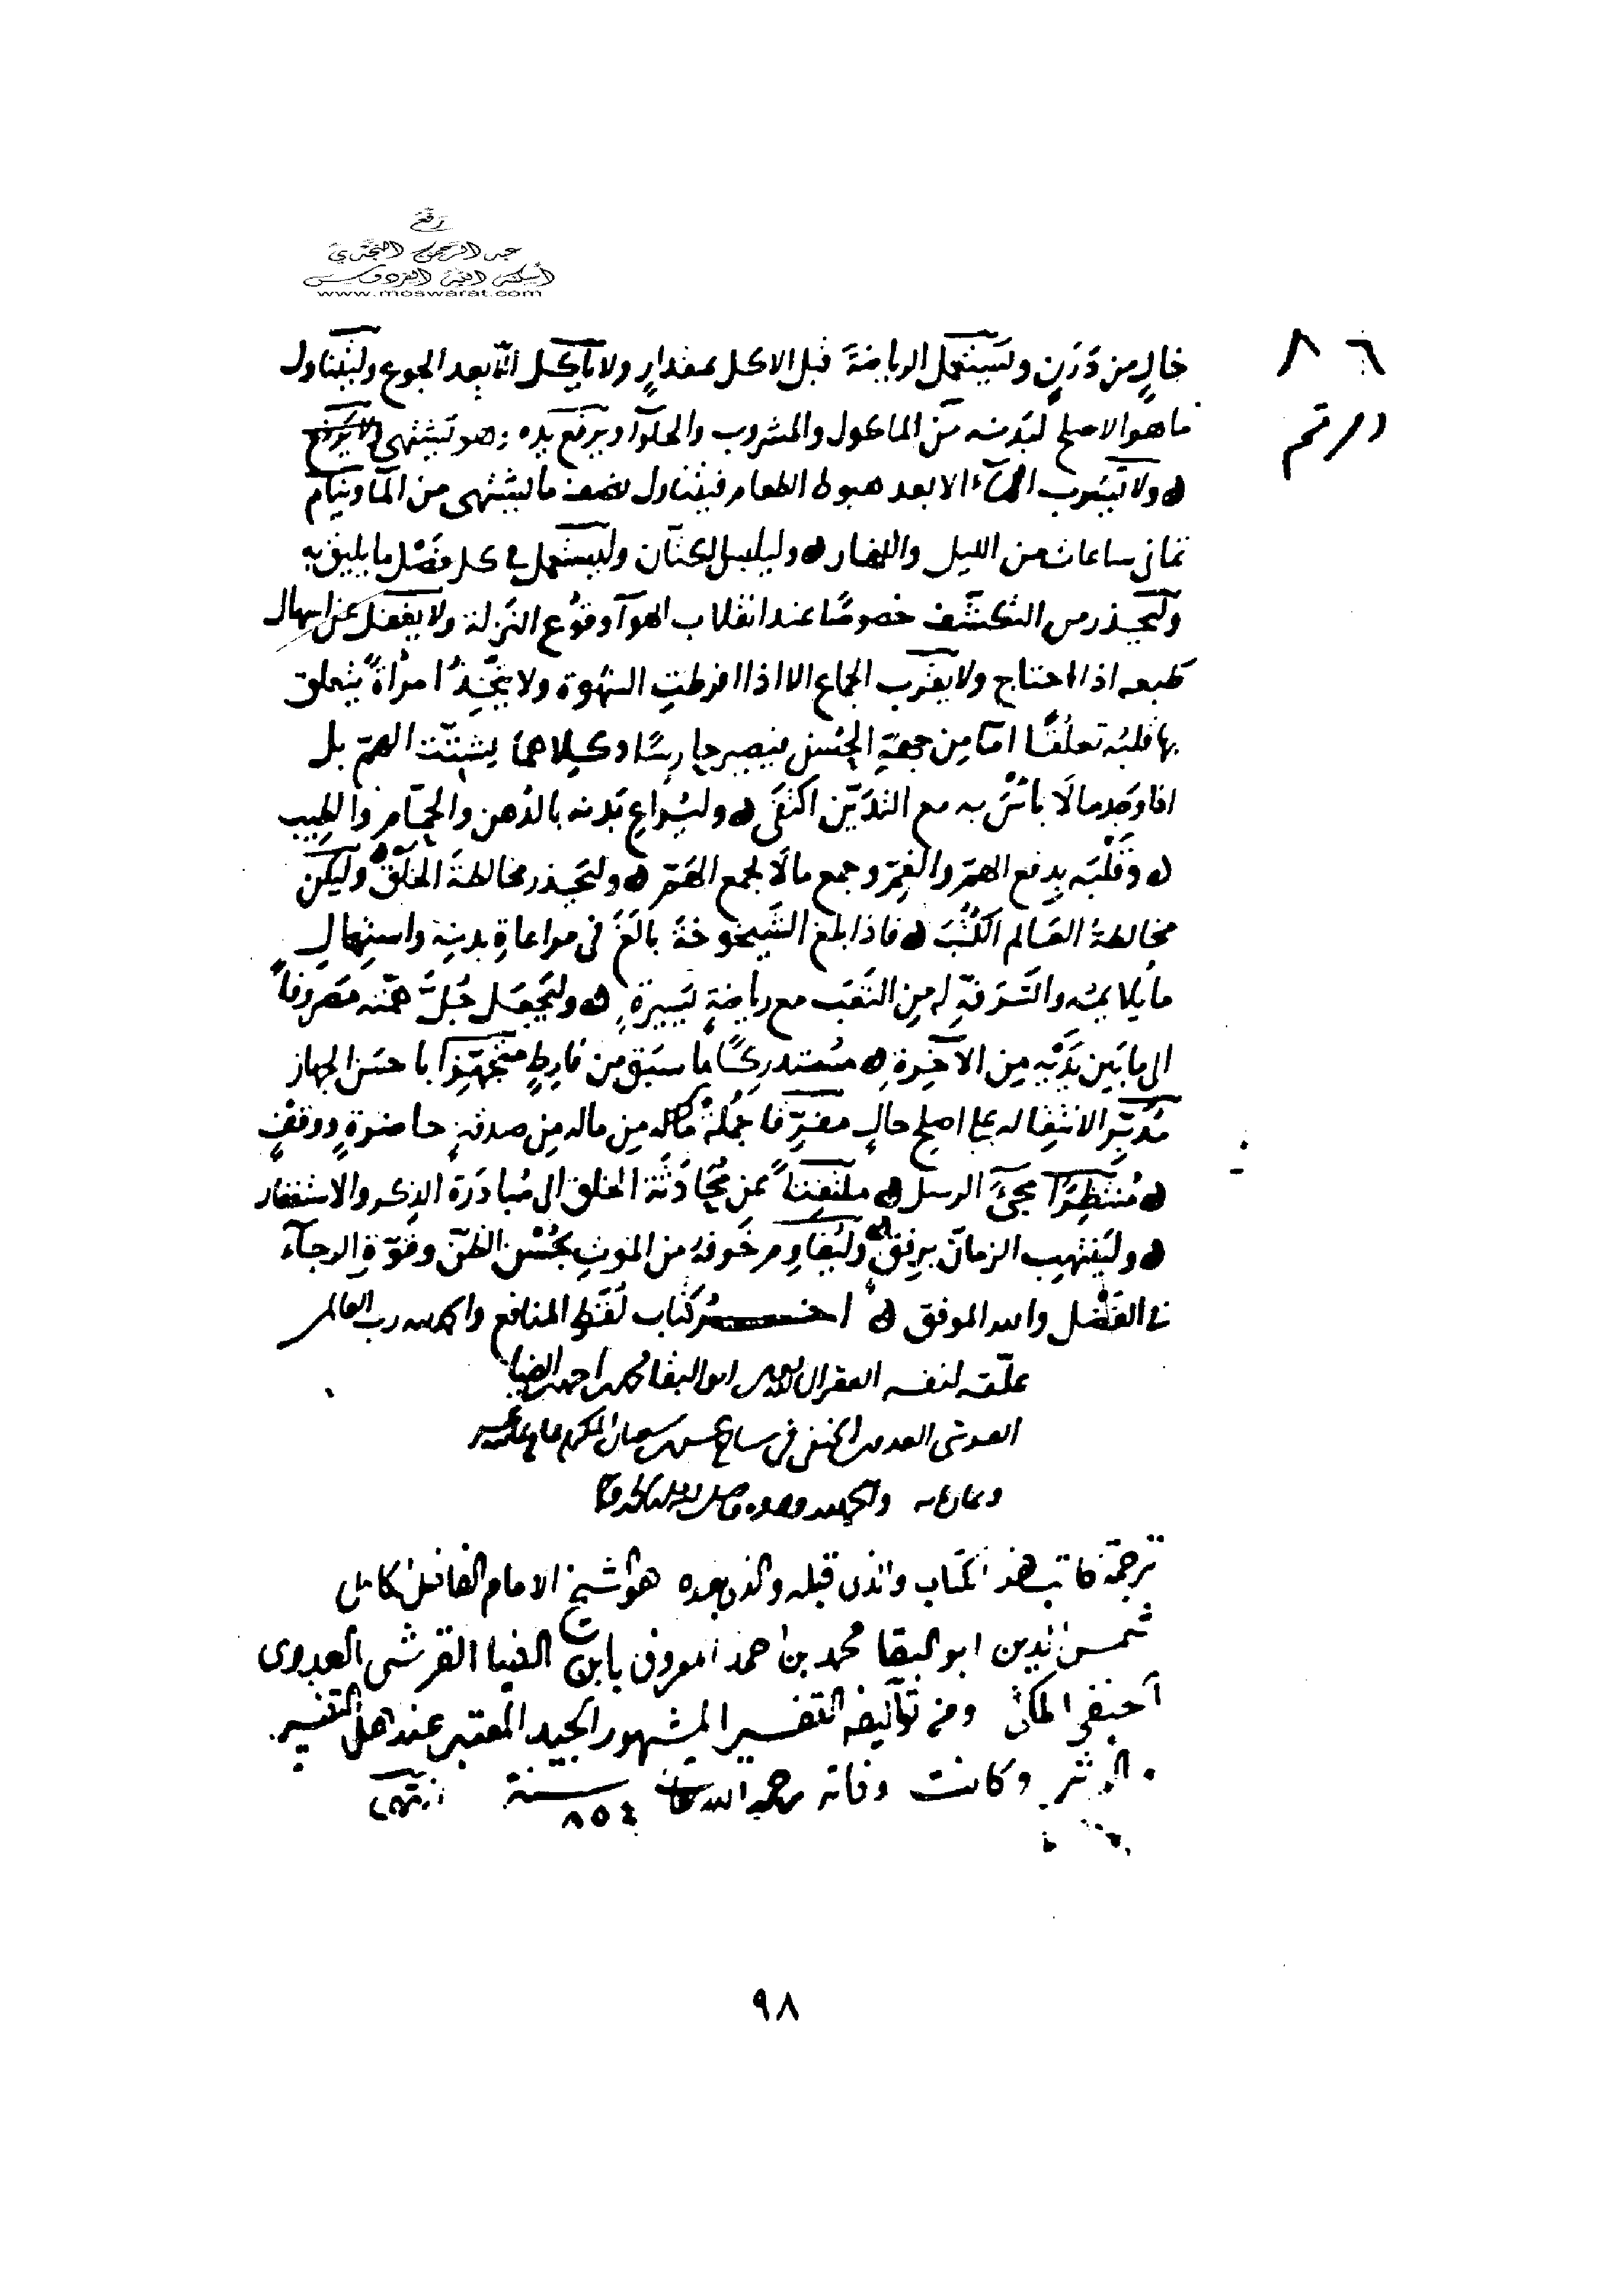 رفع
عبد الرحمن النجدي
أسكنه الله الفردوس
www.moswarat.com
٨٦
خالٍ من دَرَنٍ وليستعمل الرياضةَ قبل الاكل بمقدارٍ ولا ياكل الّا بعد الجوع وليتناول
ما هو الاصلح لبدنه من الماكول والمشروب والحلوآ ويرفع يده وهو يشتهي
ولا يشرب المآء الا بعد هبوط الطعام فيتناول نصف ما يشتهى من المآ وينام
ثمانى ساعات من الليل والنهار وليلبس الكتّان وليستعمل في كل فصْل ما يليق به
وليحذر من التكشّف خصوصًا عند انقلاب الهوآ وقوُع النَزلة ولا يغفل عن اسهال
طبعه اذا احتاج ولا يقرب الجماع الا اذا افرطتِ الشهْوة ولا يتّخِذُ امرأةً يتعلق
بها قلبُه تعلُقًا امّا مِن جهةِ الحُسنِ فيصير حارسًا وكلاهما يشتّت الهمّ بل
اذا وَجد ما لَا باْسَ به مع التَدَيّن اكتفَى وليُراعِ بَدنه بالدُهن والحمّام والطِيب
وقَلْبَه بِدفع الهمّ والغمّ وجمع مالًا لجمع الهَمّ وليَحذر مخالطةَ الخلْق وليكن
مخالطةُ العَالم الكُتُبَ فاذا بلغ الشَيخوخةَ بالَغَ فى مراعاةِ بدنِه واستِعمالِ
ما يُلايمُه والتَرفّهِ له مِن التَعَب مع رياضةٍ يَسِيرةٍ وليَجعَل جُلَّ همّته مَصروفًا
الى ما بَين يَدَيْه مِن الآخِرةِ مُستدرِكًا ما سبَق من فارِطٍ متجهّزا باحسَن الجهاز
مُدَبّر الانتِقاله على اصلح حالٍ مفرّقا جُملةً من ماله مِن صدقةٍ حاضرةٍ ووقفٍ
مُنتظِرًا مجىَٔ الرسل ملتفِتًا عن مُحَادَثَة الخلق الى مُبادَرة الذِكر والاستغفار
وليَنتهِب الزمانَ برِفقٍ وليُقاوِم خَوفهُ من الموتِ بحُسْن الظنّ وقوّةِ الرجآء
فى الفَضْل والله الموفق اخــــر كتاب لُقَط المنافع والحمد لله رب العالمين
علّقه لنفسه الفقير الى الله ابو البقا محمد بن احمد بن الضيا
القرشى العدوى الحنفى فى شعبان المكرم عام
وثمان مايه والحمد لله وحده
ترجمة كاتب هذا الكتاب والذى قبله والذى بعده هو الشيخ الامام الفاضل الكامل
شمس الدين ابو البقا محمد بن احمد المعروف بابن الضيا القرشى العدوى
الحنفى المكى ومن تآليفه التفسير المشهور الجيد المعتبر عند اهل التفسير
وكانت وفاته رحمه الله تعالى سنة ٨٥٤ انتهى
٩٨